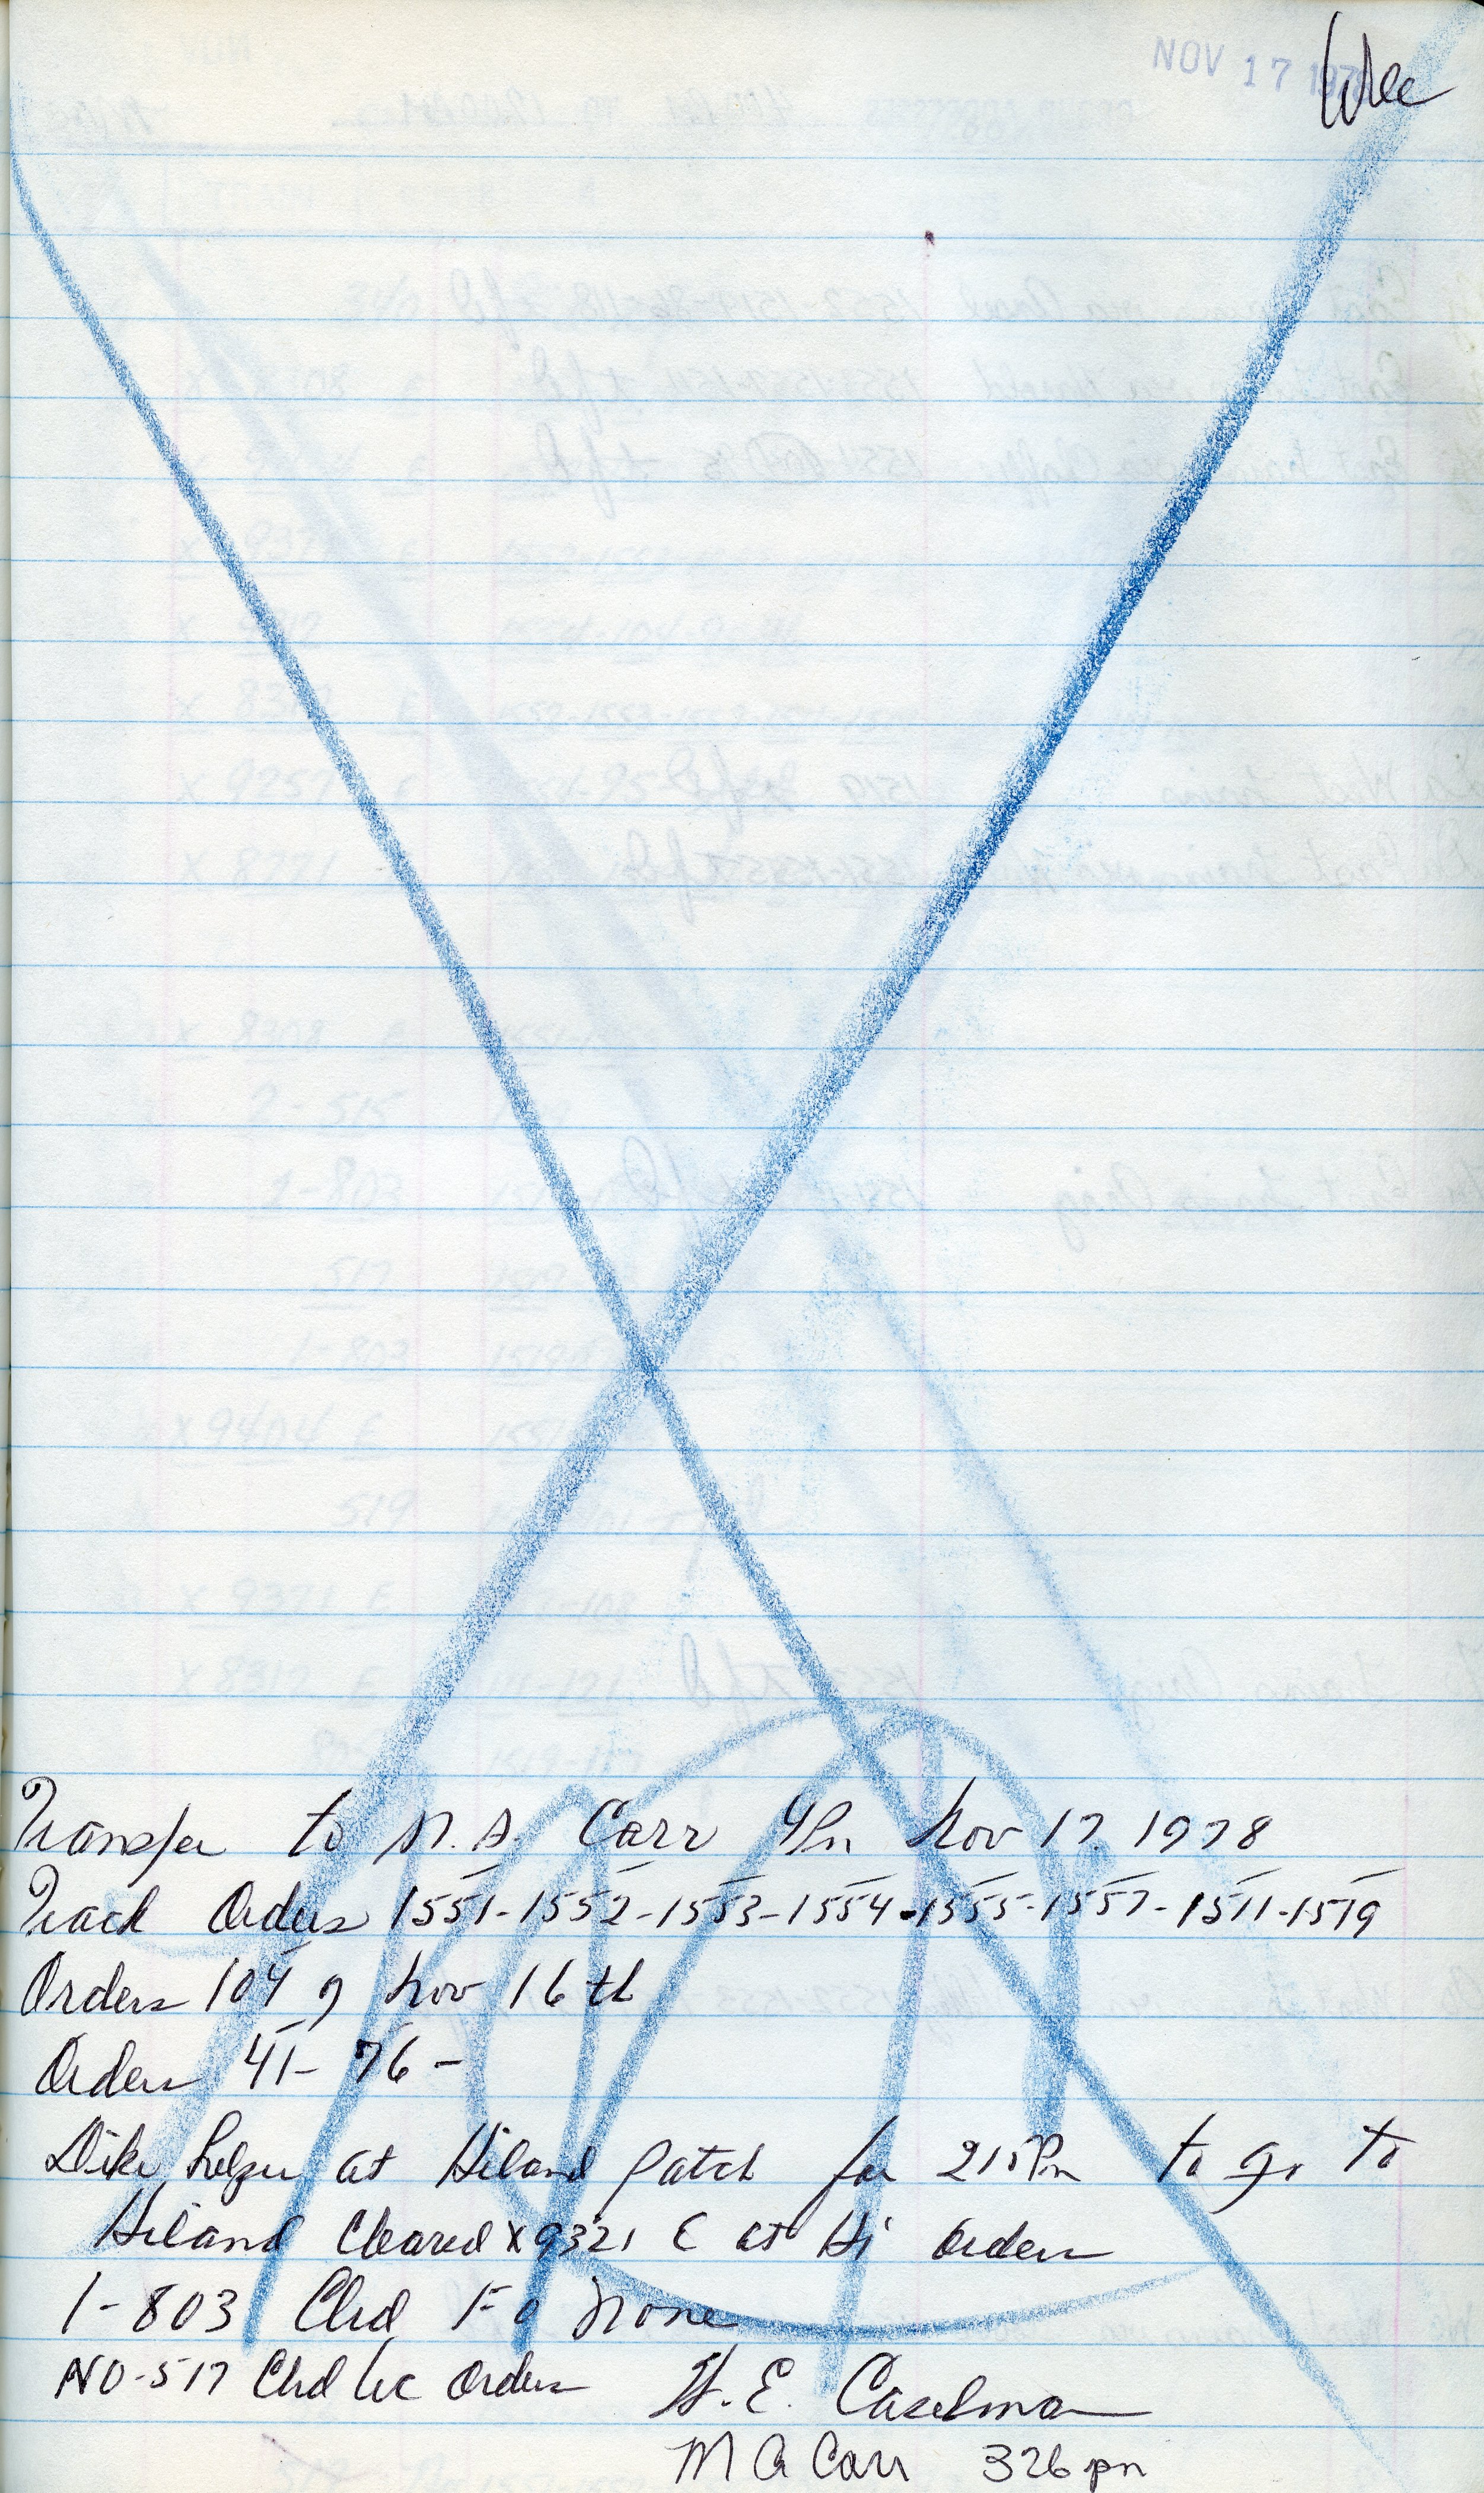 NOV 17 1978
Transfer to M. A. Carr 4Pm Nov 17 1978
Track Orders 1551-1552-1553-1554-1555-1557-1511-1519
Orders 104 of Nov 16th
Orders 41- 76 -
at Hiland Patch for 215Pm to go to
Hiland Cleared X 9321 E at Hi orders
1-803 Clrd Fo none
NO-517 Clrd Wc Orders H. E. Caselman
M A Carr 326 pm